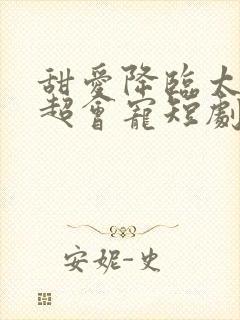 甜愛降臨太
超會寵短劇
安妮-史